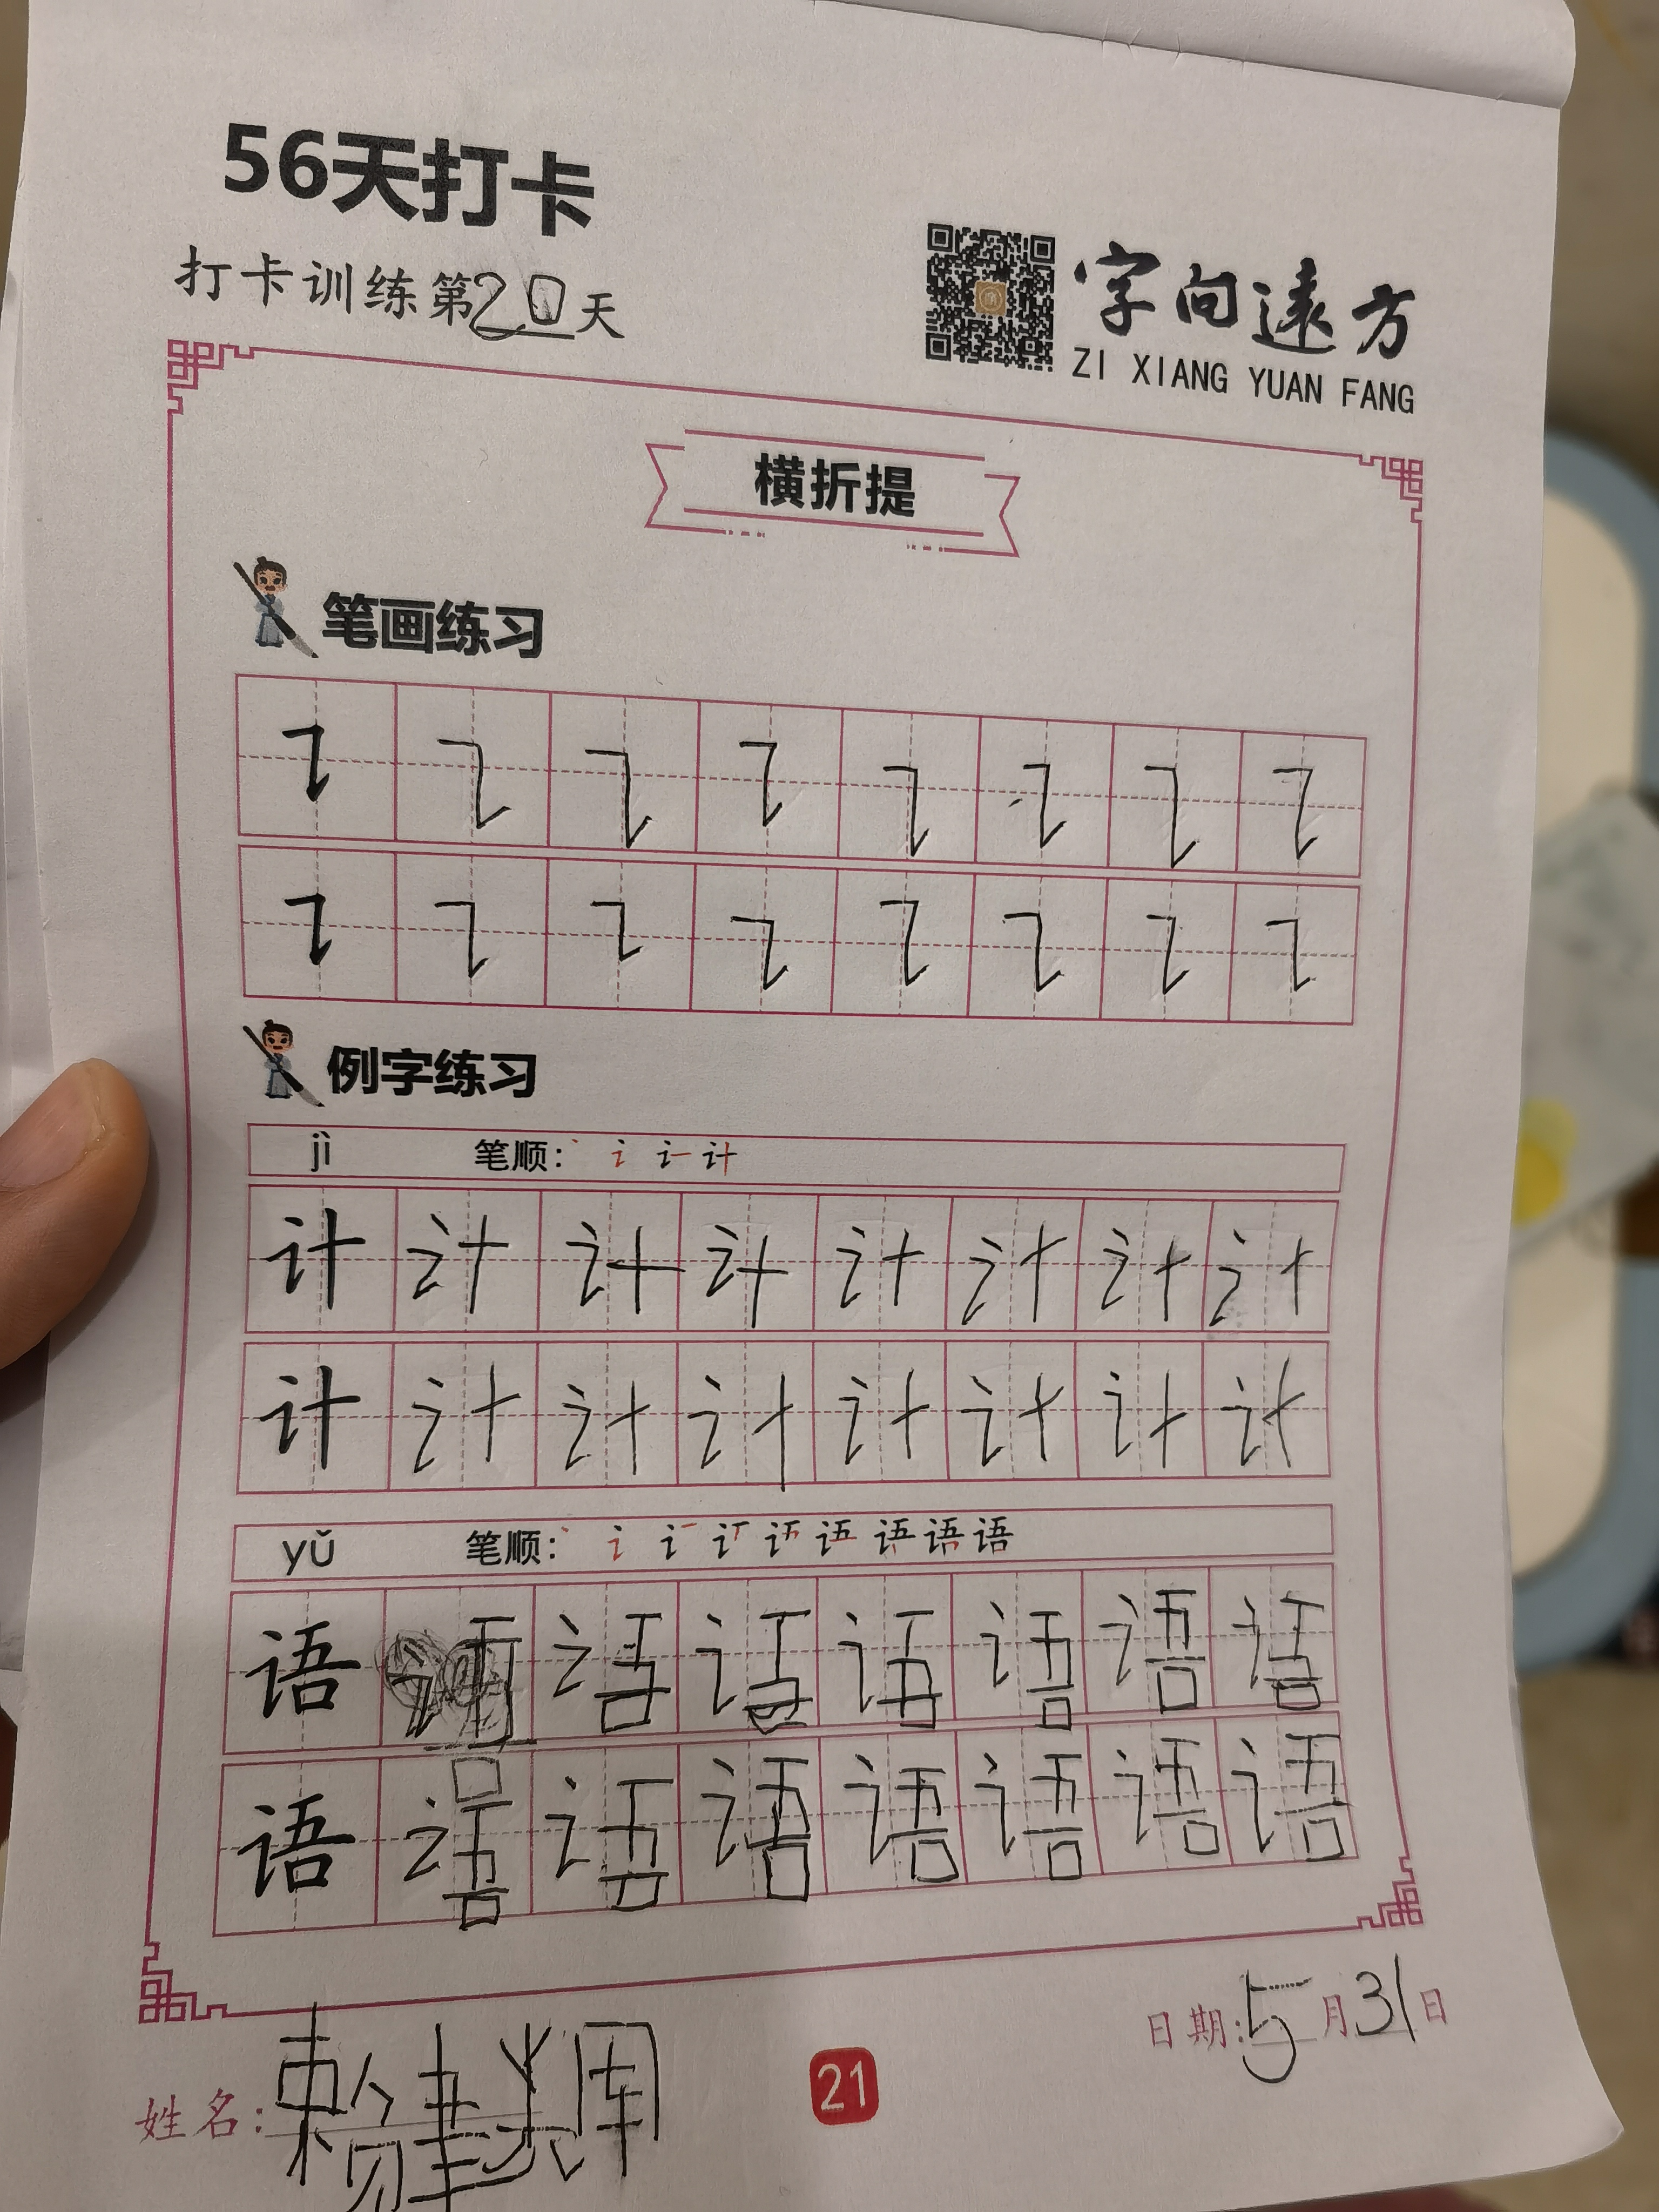 56天打卡
打卡训练第20天
字向遠方
ZI XIANG YUAN FANG
横折提
笔画练习
例字练习
jì 笔顺：
计 计 计 计 计 计 计 计
计 计 计 计 计 计 计 计
yǔ 笔顺：
语 语 语 语 语 语 语
语 语 语 语 语 语 语 语
姓名：赖
21
日期：5月31日